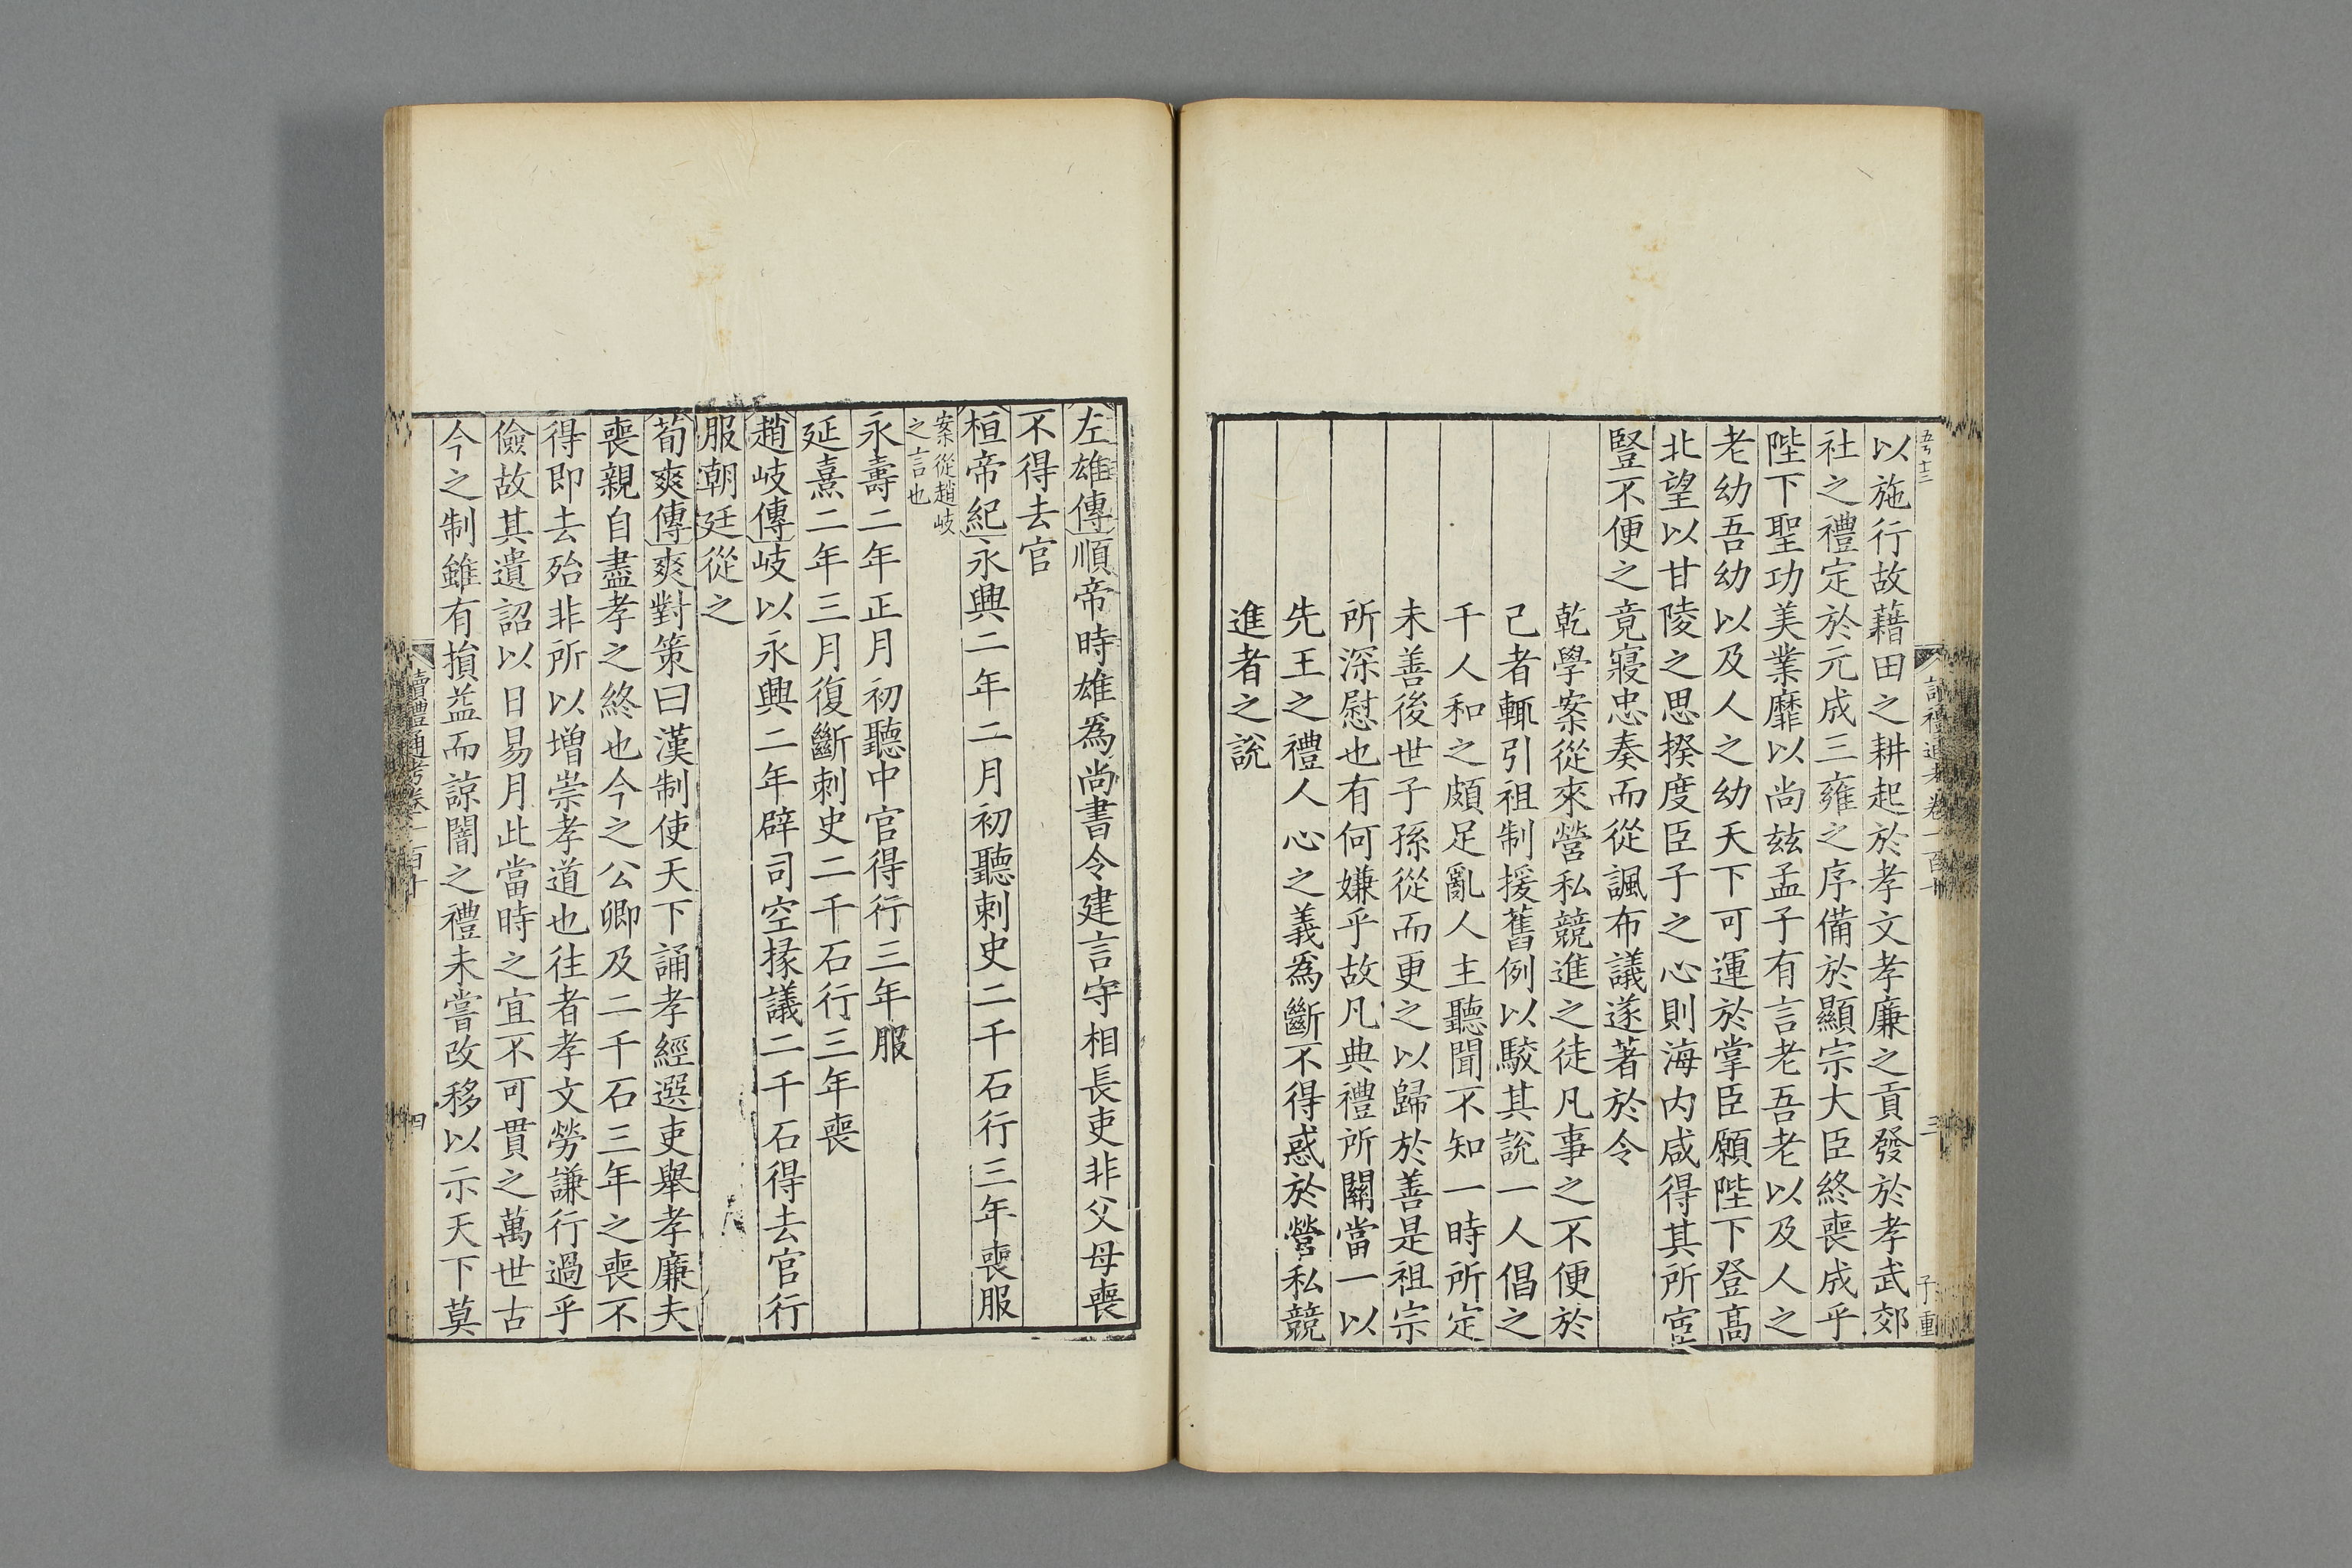 以施行故藉田之耕起於孝文孝廉之貢發於孝武郊
社之禮定於元成三雍之序備於顯宗大臣終喪成乎
陛下聖功美業靡以尚兹孟子有言老吾老以及人之
老幼吾幼以及人之幼天下可運於掌臣願陛下登高
北望以甘陵之思揆度臣子之心則海内咸得其所宦
豎不便之竟寢忠奏而從諷布議遂著於令
乾學案從來營私競進之徒凡事之不便於
己者輒引祖制援舊例以駮其説一人倡之
千人和之頗足亂人主聽聞不知一時所定
未善後世子孫從而更之以歸於善是祖宗
所深慰也有何嫌乎故凡典禮所關當一以
先王之禮人心之義爲斷不得惑於營私競
進者之説
左雄傳順帝時雄爲尚書令建言守相長吏非父母喪
不得去官
桓帝紀永興二年二月初聽刺史二千石行三年喪服
案從趙岐
之言也
永壽二年正月初聽中官得行三年服
延熹二年三月復斷刺史二千石行三年喪
趙岐傳岐以永興二年辟司空掾議二千石得去官行
服朝廷從之
荀爽傳爽對策曰漢制使天下誦孝經選吏舉孝廉夫
喪親自盡孝之終也今之公卿及二千石三年之喪不
得即去殆非所以增崇孝道也往者孝文勞謙行過乎
儉故其遺詔以日易月此當時之宜不可貫之萬世古
今之制雖有損益而諒闇之禮未嘗改移以示天下莫
讀禮通考卷一百十
四